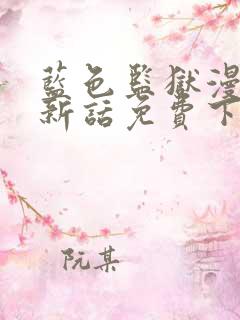 藍色監獄漫
新話免費下
阮某